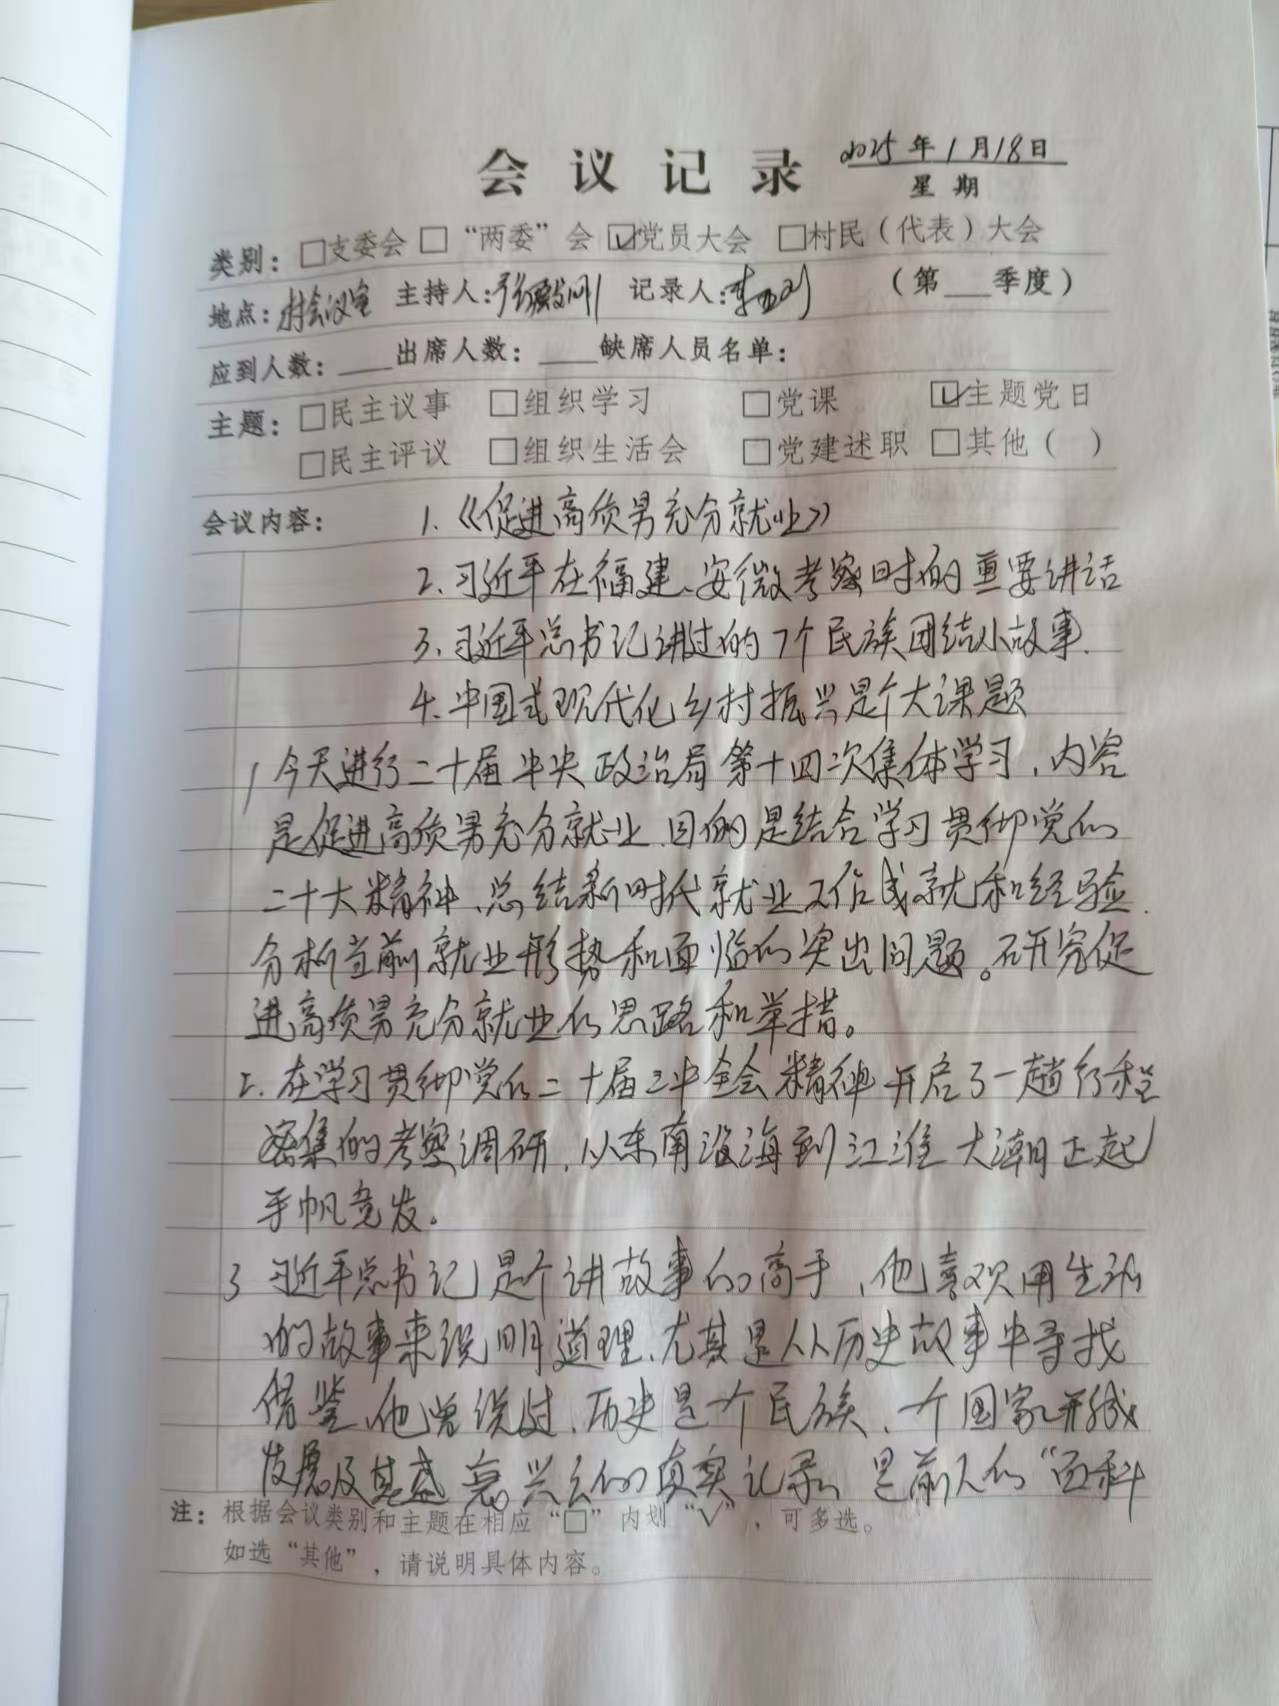 会议记录 2025年1月18日
星期
类别：□支委会 □“两委”会 ☑党员大会 □村民（代表）大会
地点：村会议室 主持人： 记录人： （第___季度）
应到人数：___出席人数：___缺席人员名单：
主题：□民主议事 □组织学习 □党课 ☑主题党日
□民主评议 □组织生活会 □党建述职 □其他（ ）
会议内容： 1.《促进高质量充分就业》
2.习近平在福建、安微考察时的重要讲话
3.习近平总书记讲过的7个民族团结小故事.
4.中国式现代化乡村振兴是个大课题
1 今天进行二十届中央政治局第十四次集体学习，内容
是促进高质量充分就业.目的是结合学习贯彻党的
二十大精神、总结新时代就业工作成就和经验.
分析当前就业形势和面临的突出问题。研究促
进高质量充分就业的思路和举措。
2.在学习贯彻党的二十届三中全会精神开启了一趟行程
密集的考察调研，从东南沿海到江淮大潮正起
千帆竞发。
3 习近平总书记是个讲故事的高手，他喜欢用生活
的故事来说明道理.尤其是从历史故事中寻找
借鉴.他曾说过.历史是一个民族、一个国家形成
发展及其盛衰兴亡的真实记录，是前人的“百科
注：根据会议类别和主题在相应“□”内划“√”，可多选。
如选“其他”，请说明具体内容。